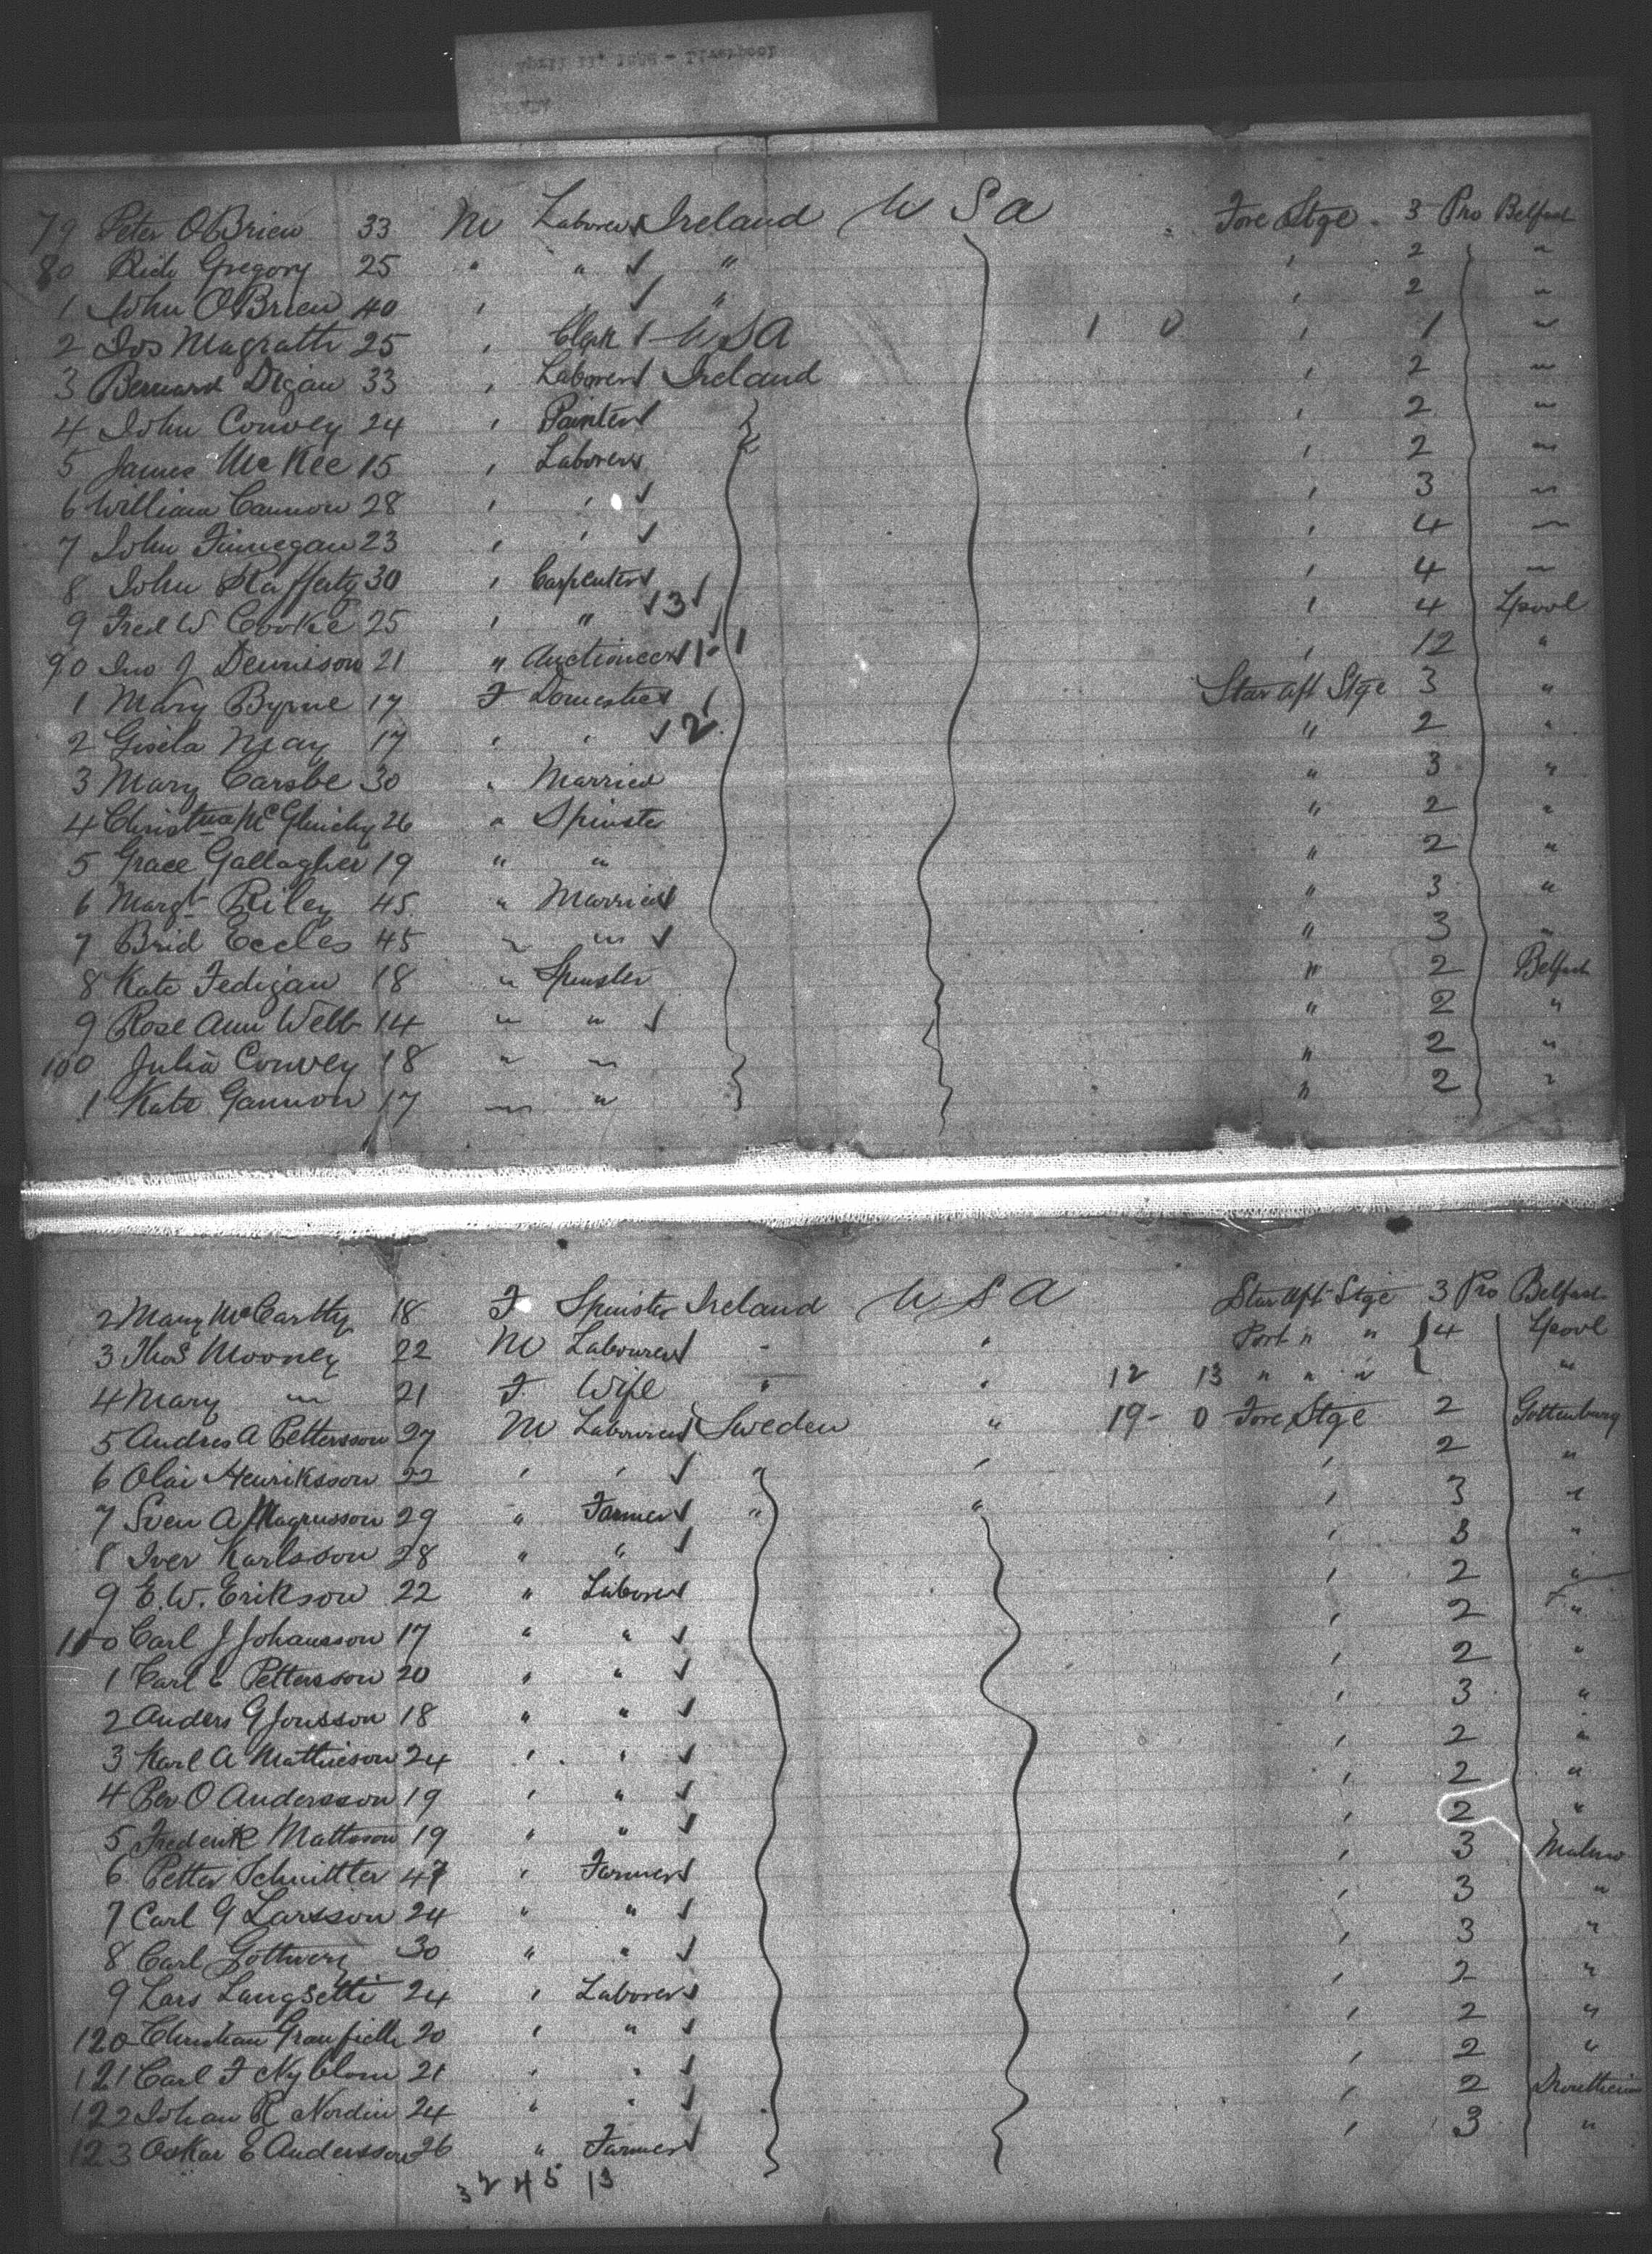 79 Peter O'Brien 33 M Laborer Ireland U S A Fore Stge 3 Pro Belfast
80 Rich Gregory 25 " " " 2 "
1 John O'Brien 40 " " " 2 "
2 Jos Magrath 25 " Clerk USA 1 0 " 1 "
3 Bernard Digan 33 " Laborer Ireland " 2 "
4 John Convey 24 " Painter " 2 "
5 James McKee 15 " Laborer " 2 "
6 William Cannon 28 " " " 3 "
7 John Finnegan 23 " " " 4 "
8 John Rafferty 30 " Carpenter " 4 "
9 Fred W Cooke 25 " " 3 " 4 Lpool
90 Jno J Dennison 21 " Auctioneer 1 - 1 " 12 "
1 Mary Byrne 17 F Domestic Star aft Stge 3 "
2 Gisela May 17 " " 2 " 2 "
3 Mary Carsbe 30 " Married " 3 "
4 Christina McGlinchy 26 " Spinster " 2 "
5 Grace Gallagher 19 " " " 2 "
6 Margt Riley 45 " Married " 3 "
7 Brid Eccles 45 " " " 3 "
8 Kate Fedigan 18 " Spinster " 2 Belfast
9 Rose Ann Webb 14 " " " 2 "
100 Julia Convey 18 " " " 2 "
1 Kate Gannon 17 " " " 2 "
2 Mary McCarthy 18 F Spinster Ireland U S A Star aft Stge 3 Pro Belfast
3 Thos Mooney 22 M Labourer " " Port " " 4 Lpool
4 Mary " 21 F Wife " " 12 13 " " " "
5 Andres A Pettersson 27 M Labourer Sweden " 19 - 0 Fore Stge 2 Gottenburg
6 Olai Henriksson 22 " " " " " 2 "
7 Sven A Magnusson 29 " Farmer " " " 3 "
8 Iver Karlsson 28 " " " 3 "
9 E. W. Erikson 22 " Laborer " 2 "
110 Carl J Johansson 17 " " " 2 "
1 Carl E Pettersson 20 " " " 2 "
2 Anders G Jonsson 18 " " " 3 "
3 Karl A Mathieson 24 " " " 2 "
4 Per O Andersson 19 " " " 2 "
5 Frederik Mattsson 19 " " " 2 "
6 Petter Schnittler 47 " Farmer " 3 Malmo
7 Carl G Larsson 24 " " " 3 "
8 Carl 30 " " " 3 "
9 Lars Langsetti 24 " Laborer " 2 "
120 Christian 20 " " " 2 "
121 Carl F Nyblom 21 " " " 2 "
122 Johan R Nordin 24 " " " 2 Drontheim
123 Oskar E Andersson 26 " Farmer " 3 "
3 2 4 5 13